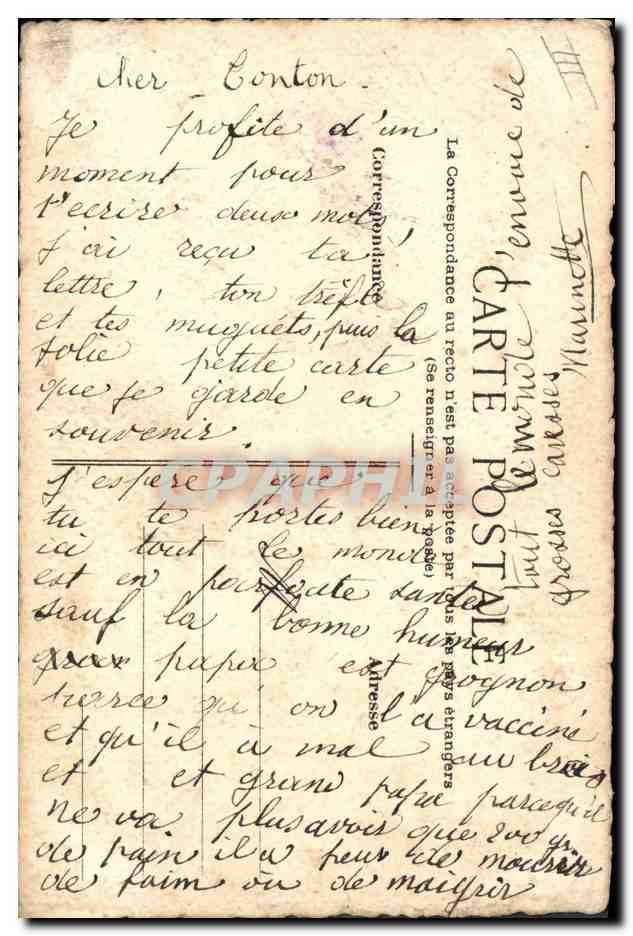 Cher Tonton.
Je profite d'un
moment pour
t'ecrire deux mots,
j'ai reçu ta
lettre, ton trèfle
et tes muguets, puis la
jolie petite carte
que je garde en
souvenir.
J'espère que
tu te portes bien
ici tout le monde
est en parfaite santée
sauf la bonne humeur
papa est grognon
parce qu'on l'a vacciné
et qu'il à mal au bras
et et grand papa parcequ'il
ne va plus avoir que 200 gr.
de pain il a peur de mourir
de faim ou de maigrir
J'envoie de
tout le monde
grosses caresses
Marinette
III
CARTE POSTALE
La Correspondance au recto n'est pas acceptée par tous les pays étrangers
(Se renseigner à la poste)
Correspondance
Adresse
CPAPHIL